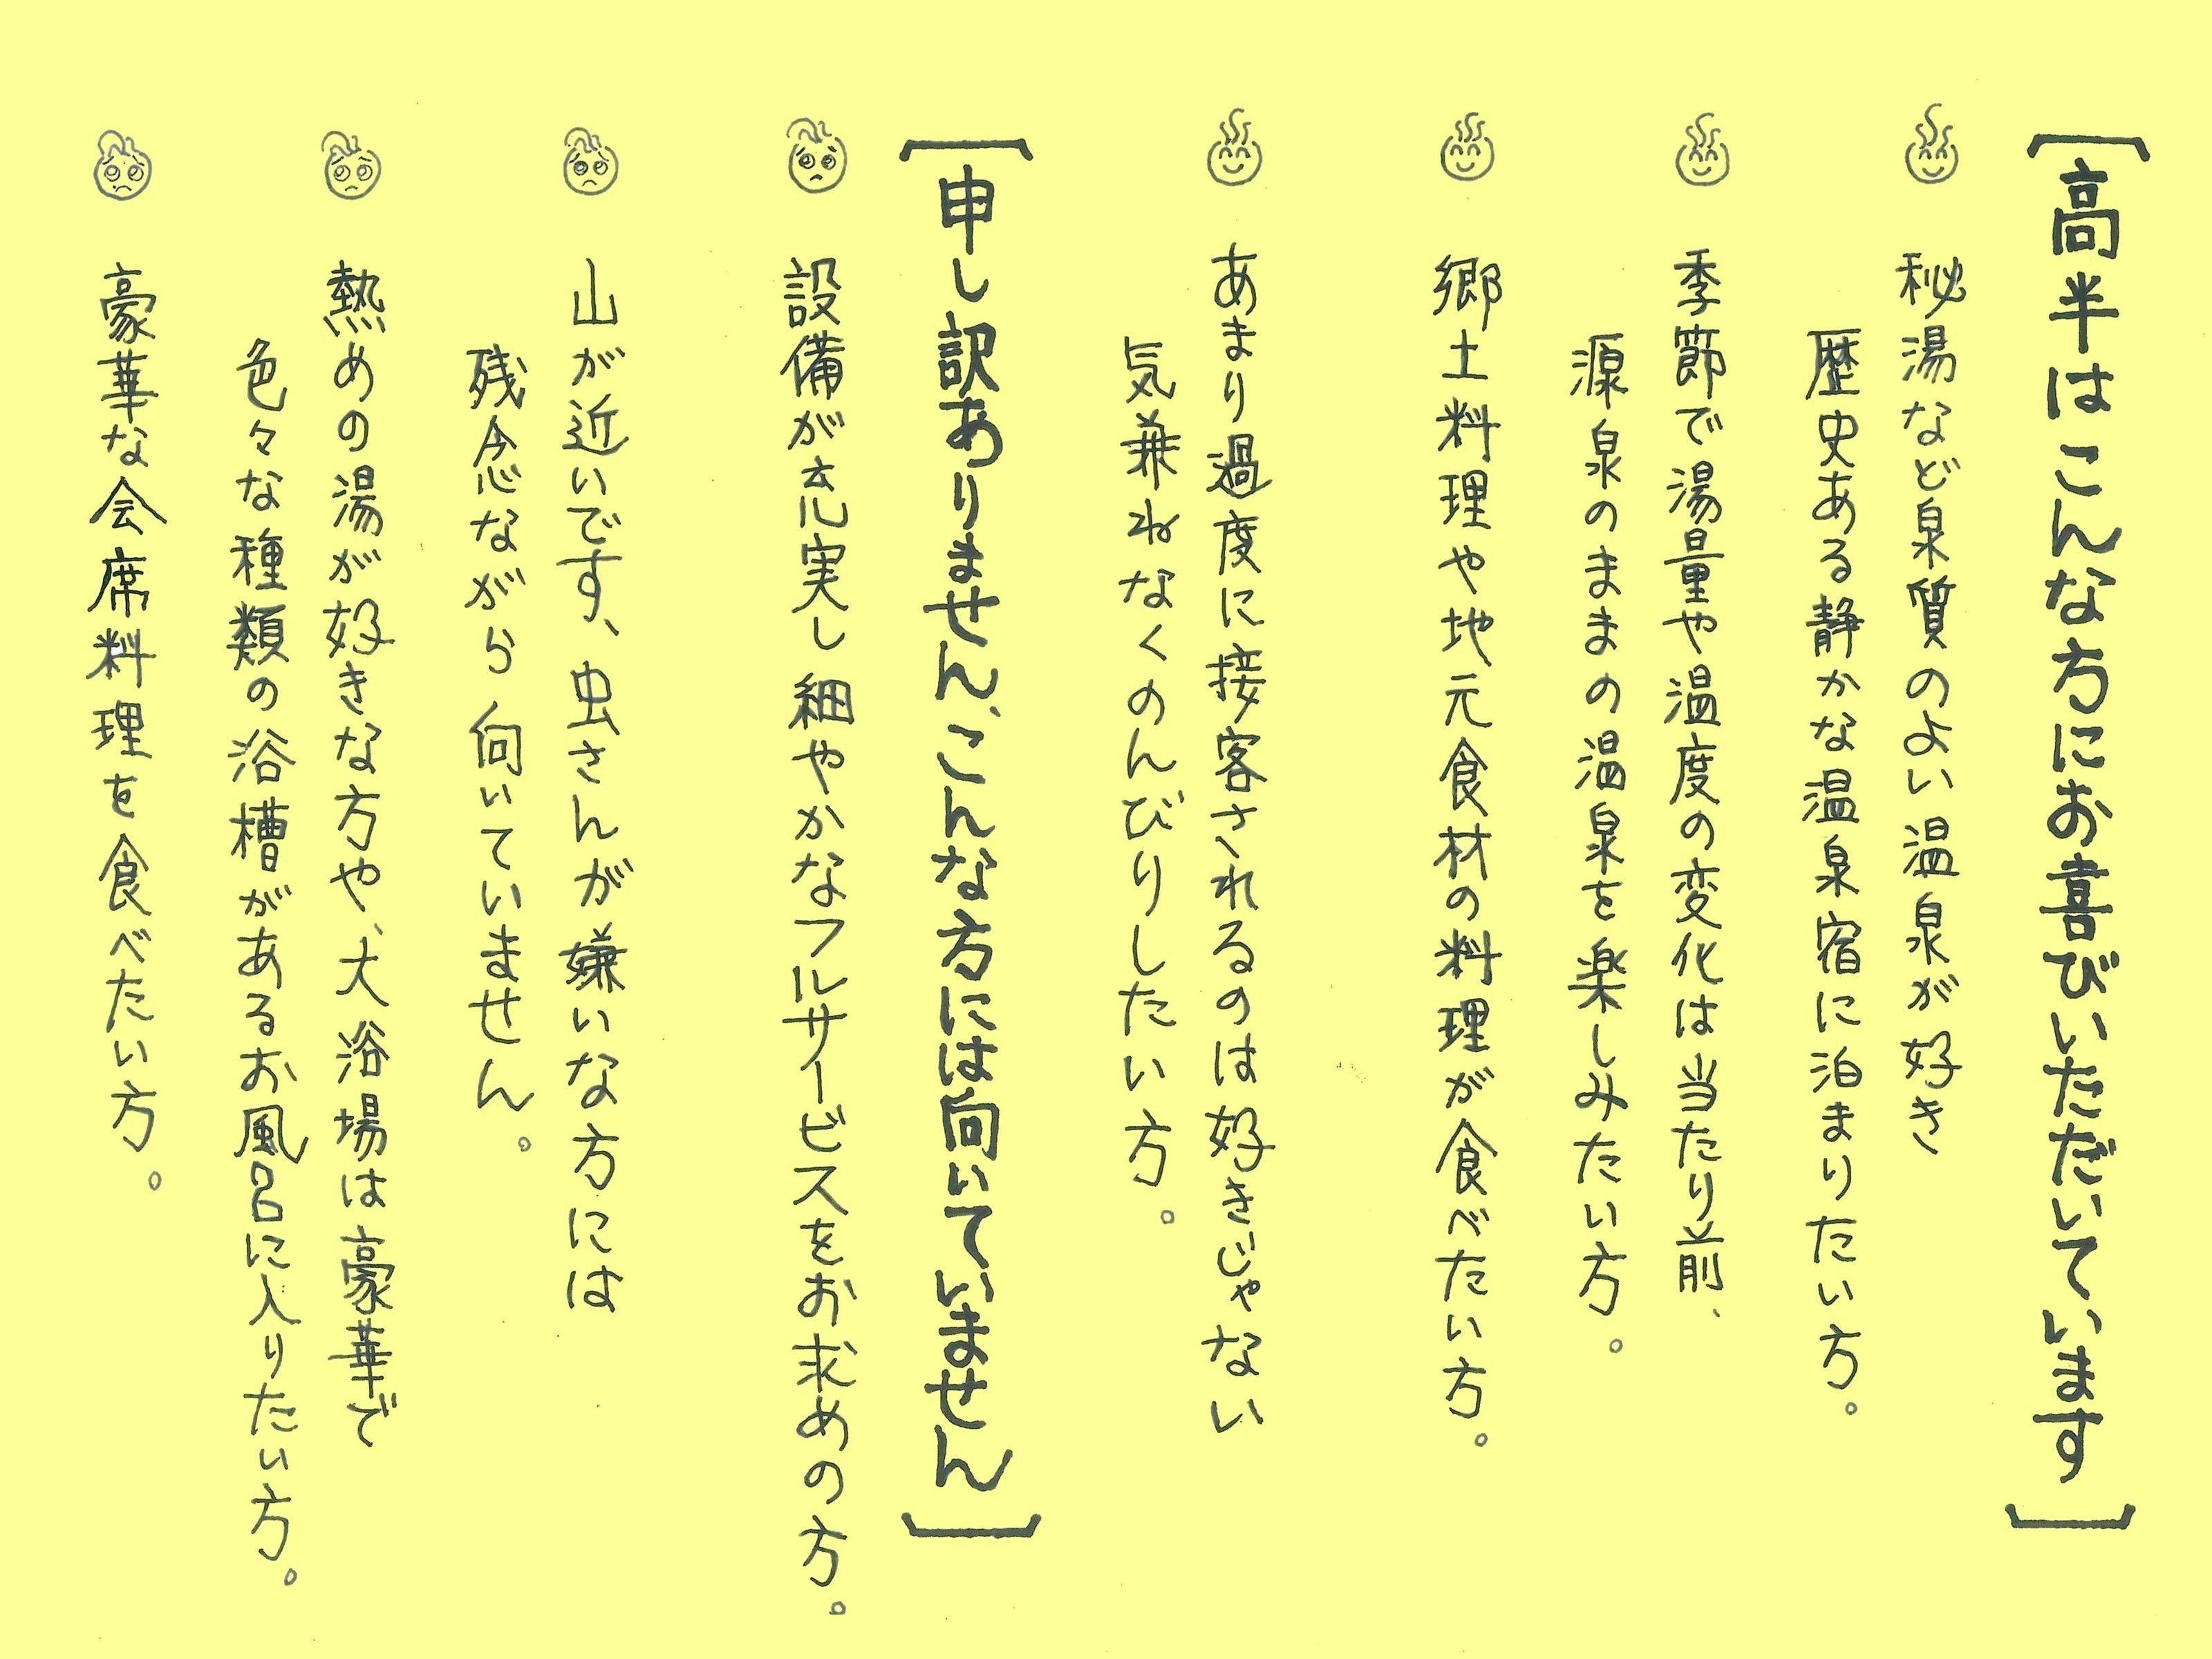 ［高半はこんな方にお喜びいただいています］
秘湯など泉質のよい温泉が好き
歴史ある静かな温泉宿に泊まりたい方。
季節で湯量や温度の変化は当たり前、
源泉のままの温泉を楽しみたい方。
郷土料理や地元食材の料理が食べたい方。
あまり過度に接客されるのは好きじゃない
気兼ねなくのんびりしたい方。
［申し訳ありません、こんな方には向いていません］
設備が充実し細やかなフルサービスをお求めの方。
山が近いです、虫さんが嫌いな方には
残念ながら向いていません。
熱めの湯が好きな方や、大浴場は豪華で
色々な種類の浴槽があるお風呂に入りたい方。
豪華な会席料理を食べたい方。